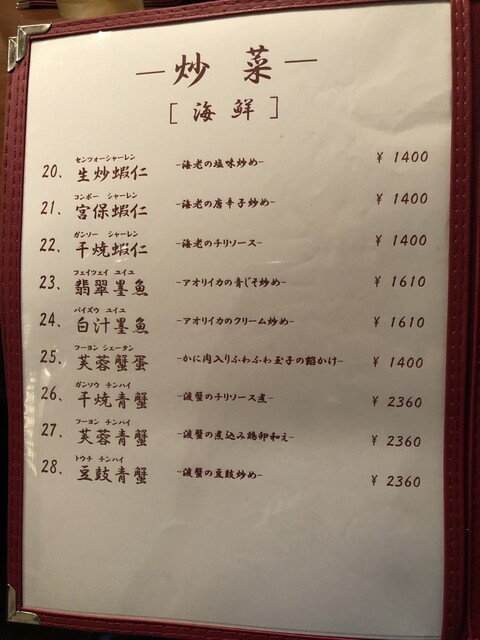 — 炒 菜 —
[ 海 鮮 ]
センツォーシャーレン
20. 生炒蝦仁 -海老の塩味炒め- ¥ 1400
コンポー シャーレン
21. 宮保蝦仁 -海老の唐辛子炒め- ¥ 1400
ガンソー シャーレン
22. 干焼蝦仁 -海老のチリソース- ¥ 1400
フェイツェイ ユイユ
23. 翡翠墨魚 -アオリイカの青じそ炒め- ¥ 1610
バイズウ ユイユ
24. 白汁墨魚 -アオリイカのクリーム炒め- ¥ 1610
フーヨン シェータン
25. 芙蓉蟹蛋 -かに肉入りふわふわ玉子の餡かけ- ¥ 1400
ガンソウ チンハイ
26. 干焼青蟹 -渡蟹のチリソース煮- ¥ 2360
フーヨン チンハイ
27. 芙蓉青蟹 -渡蟹の煮込み鶏卵和え- ¥ 2360
トウチ チンハイ
28. 豆鼓青蟹 -渡蟹の豆鼓炒め- ¥ 2360